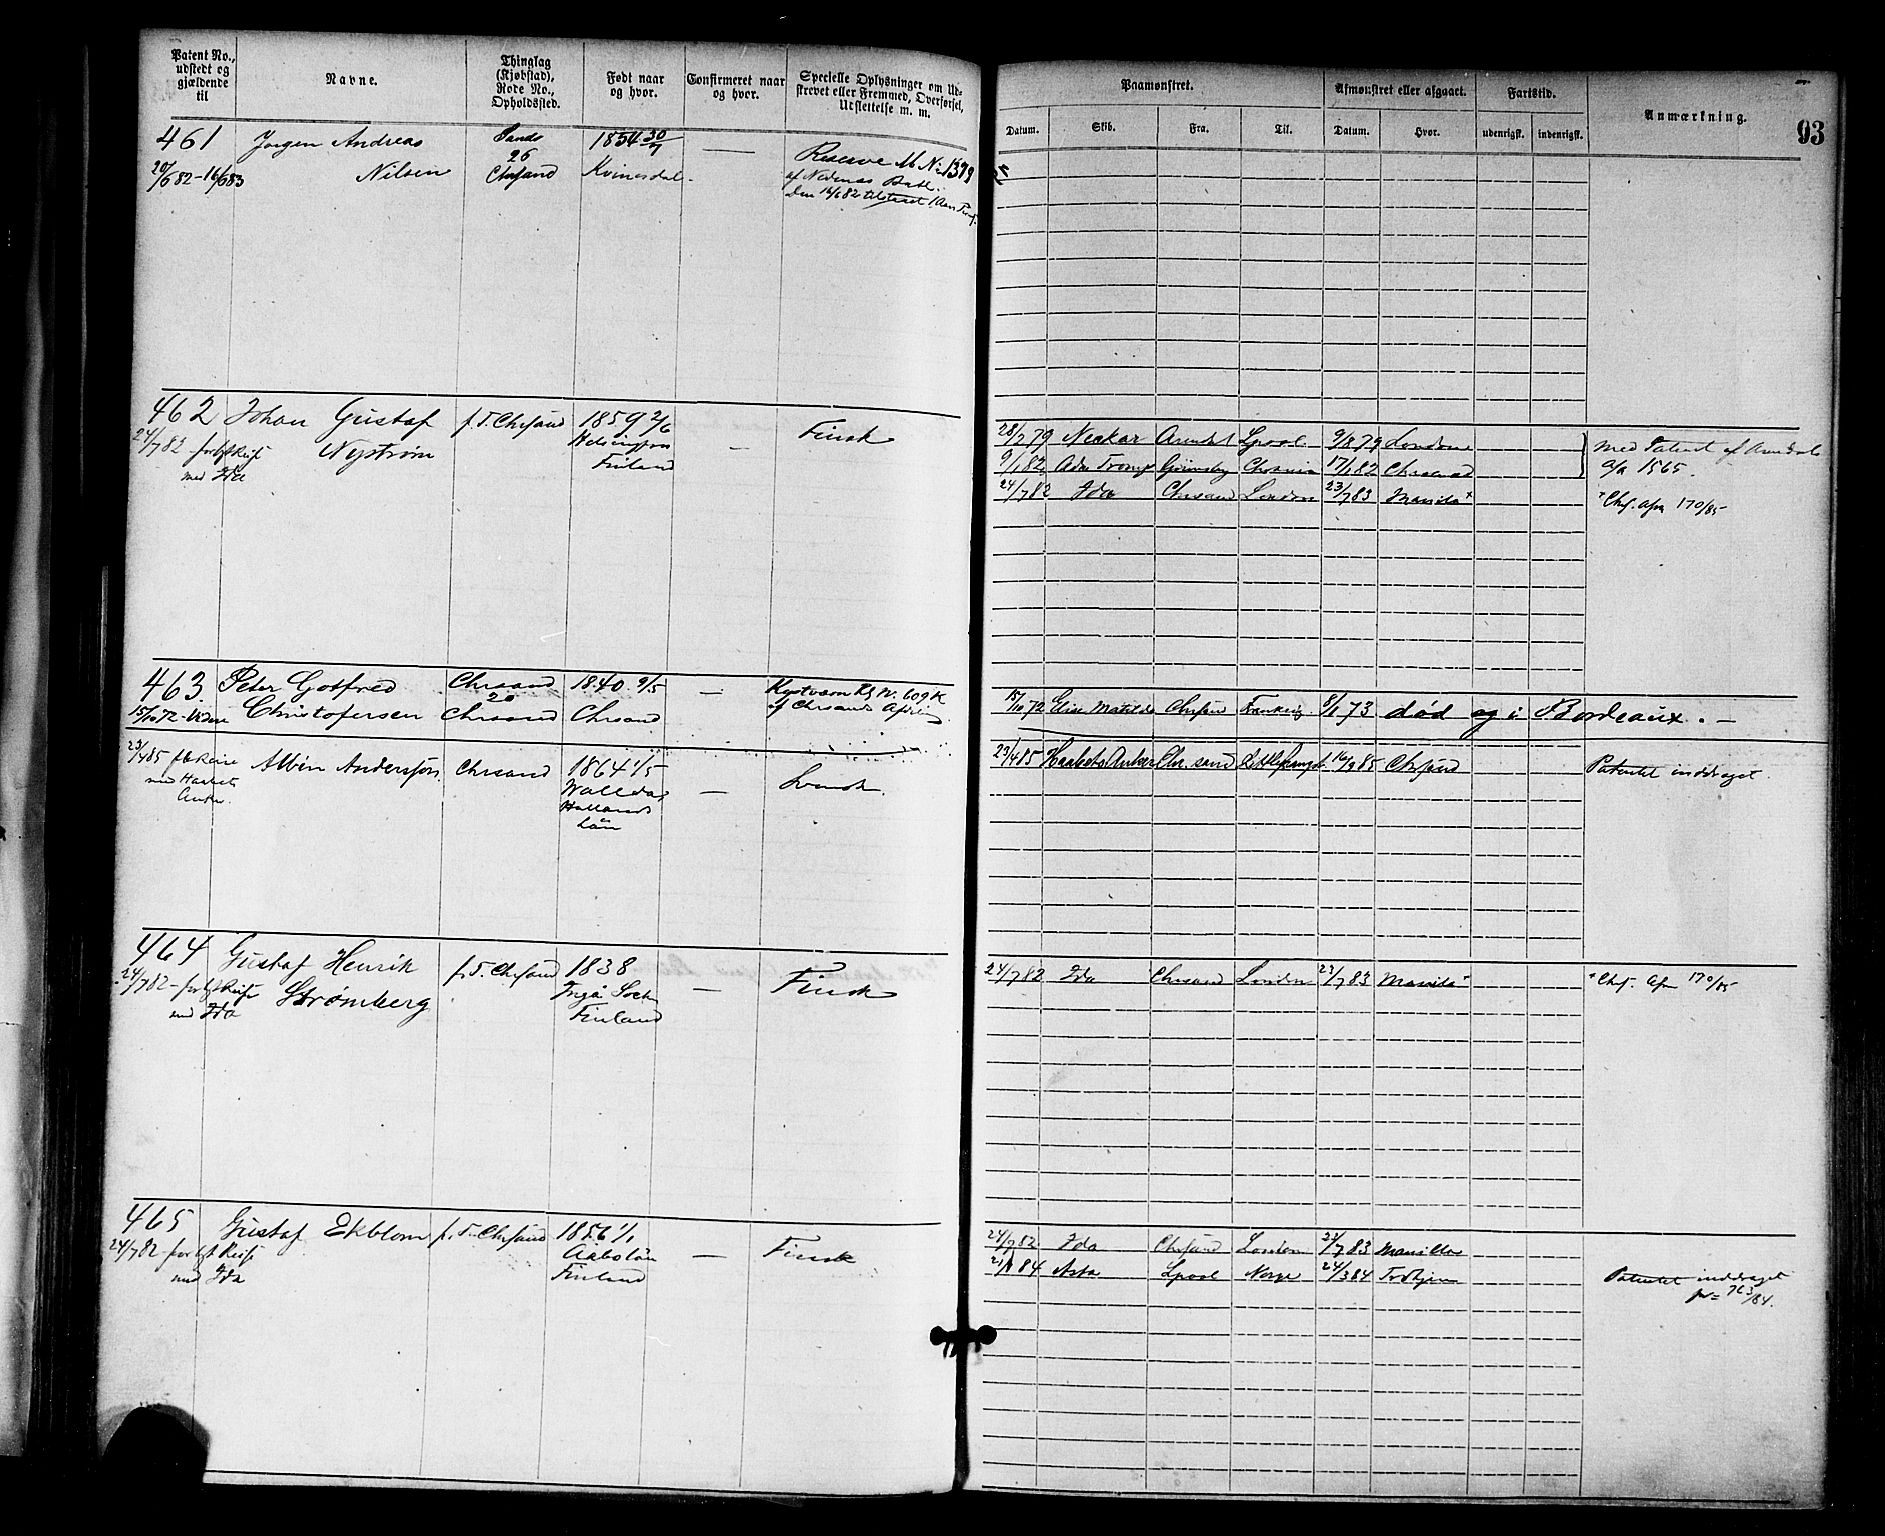 Patent No., udstedt og gjældende til
Navne.
Thinglag (Kjøbstad), Rode No., Opholdssted.
Født naar og hvor.
Confirmeret naar og hvor.
Specielle Oplysninger om Udstrevet eller Fremmed, Overførsel, Udslettelse m. m.
Paamønstret.
Afmønstret eller afgaaet.
Fartstid.
Anmærkning.
93
Datum. Skib. Fra. Til. Datum. Hvor. udenrigsk. indenrigsk.
461 Jørgen Andreas 1854 30/7 —
26 Reserve M No 1379
20/6 82 - 16/6 83 Nilsen Chrsand Kvinesdal af Nedenæs Batl.
den 16/6 82
462 Johan Gustaf f. T. Chrsand 1859 2/6 — Finsk
24/7 82 Nystrøm Helsingfors
med Ida Finland
28/2 79 Neckar Arendal Lpool 9/8 79 London med Patent af Arendal
9/1 82 Grimsby 17/1 82 Chrsand 1565.
24/7 82 Ida Chrsand London 23/7 83 Manila + + Chrs. 170/85
463 Peter Gotfred Chrsand 1840 9/5 — No 609 K
20
15/10 72 - Videre Christofersen Chrsand Chrsand af Chrsands
15/10 72 Elise Matilde Chrsand Frankrig 8/1 73 død og i Bordeaux. —
23/4 85 Albin Andersson Chrsand 1864 1/5 — Svensk
med Haabets Anker Hallands Län
23/4 85 Haabets Anker Chr.sand 85 Chrsand Patentet inddraget.
464 Gustaf Henrik f. T. Chrsand 1838 — Finsk
24/7 82 Strømberg Ingå
med Ida Finland
24/7 82 Ida Chrsand London 23/7 83 Manila + + Chrs. 170/85
465 Gustaf Ekblom f. T. Chrsand 1856 1/1 — Finsk
24/7 82 Åabo län
med Ida Finland
24/7 82 Ida Chrsand London 83 Manilla
84 Asta Lpool Norge 24/3 84 Trdhjem Patentet inddraget
763/84.